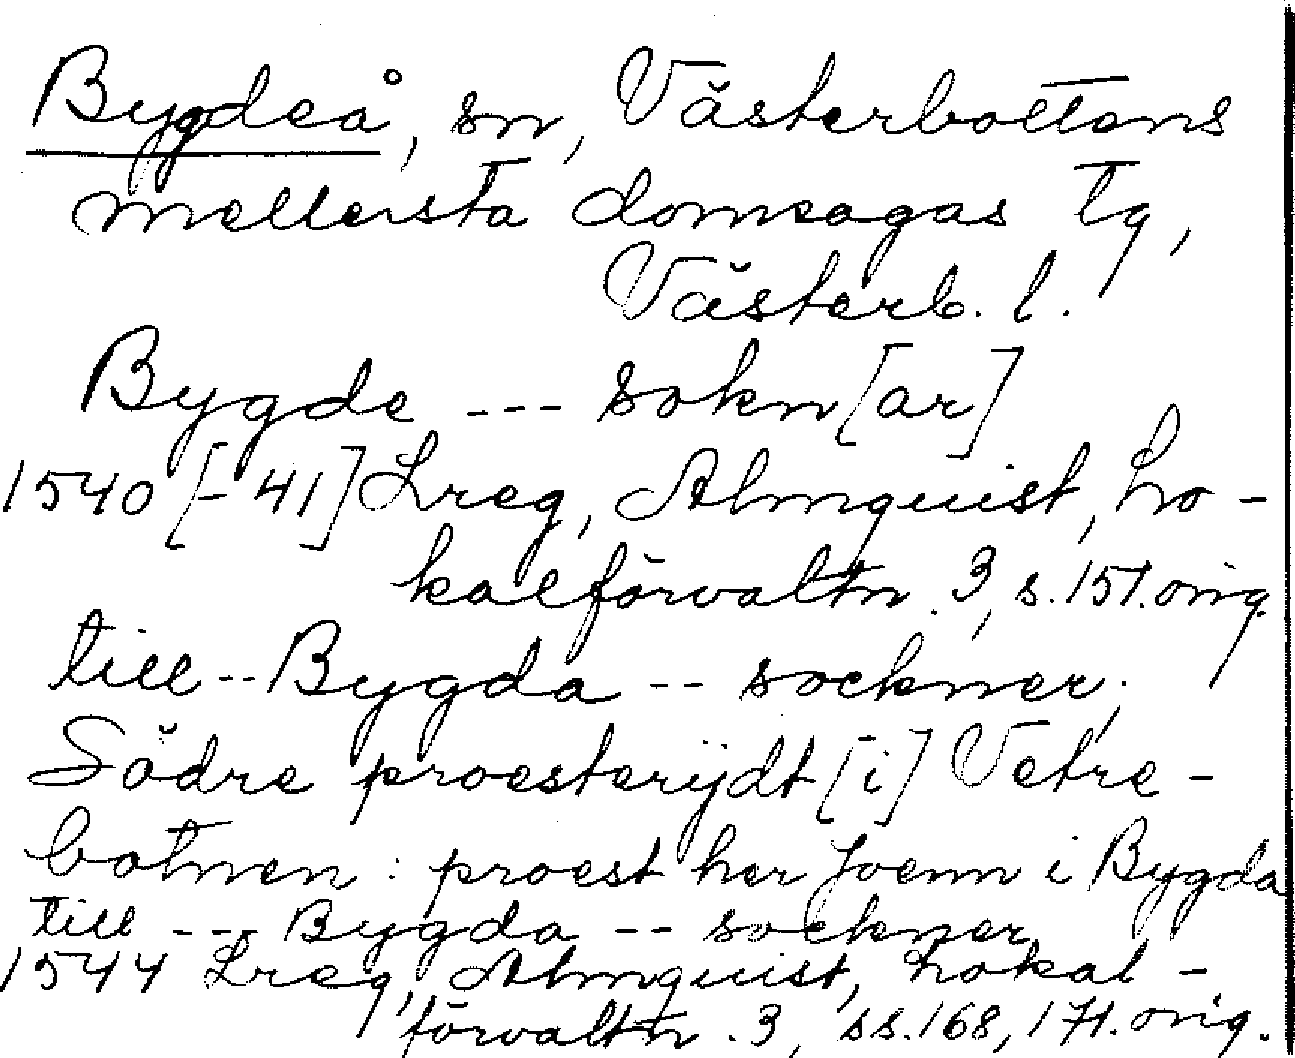 Bygdeå, sn, Västerbottens
mellersta domsagas tg,
Västerb. l.
Bygde --- sokn[ar]
1540[-41] Lreg, Almquist, Lo-
kalförvaltn. 3, s. 151. orig.
till -- Bygda -- sockner;
Södre proesterijdt [i] Vetre-
botnen: proest her Joenn i Bygda
till --- Bygda -- sockner
1544 Lreg, Almquist, Lokal-
förvaltn. 3, ss. 168, 171. orig.